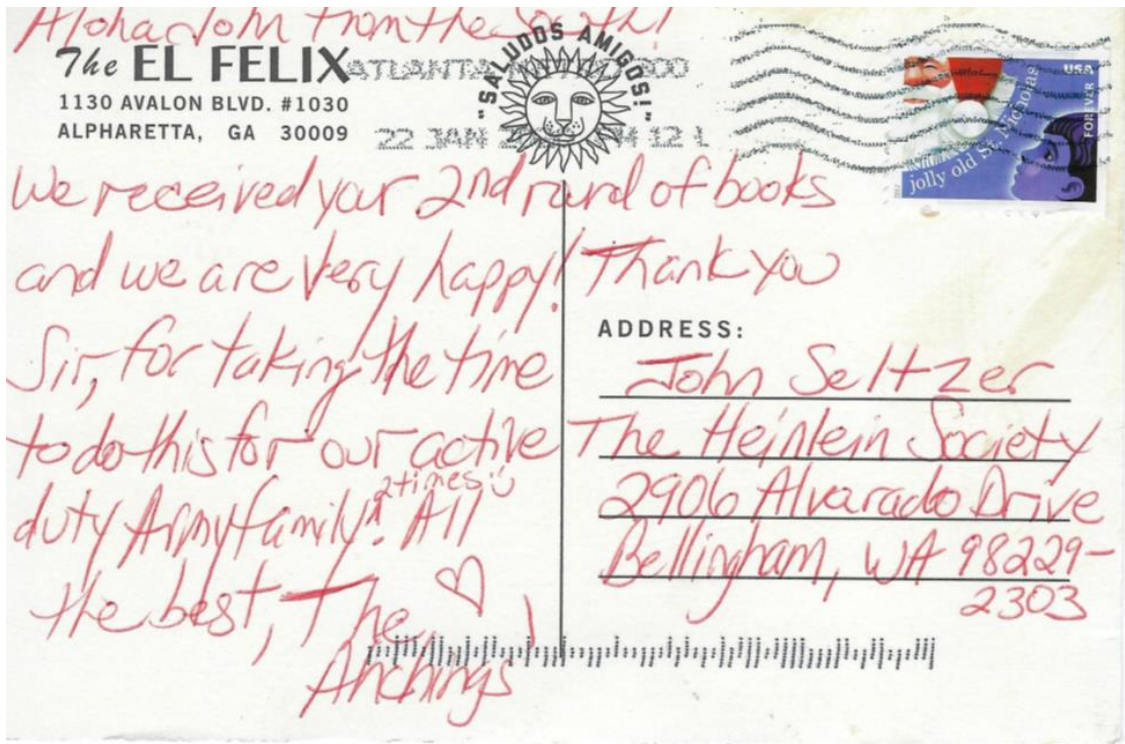 Aloha John from the South!
The EL FELIX
1130 AVALON BLVD. #1030
ALPHARETTA, GA 30009
"SALUDOS AMIGOS!"
ATLANTA
22 JAN
12 L
USA
FOREVER
jolly old St. Nicholas
We received your 2nd round of books
and we are very happy! Thank you
Sir, for taking the time
to do this for our active
duty Army family ^ 2 times :) . All
the best, The
Anchings
ADDRESS:
John Seltzer
The Heinlein Society
2906 Alvarado Drive
Bellingham, WA 98229-
2303